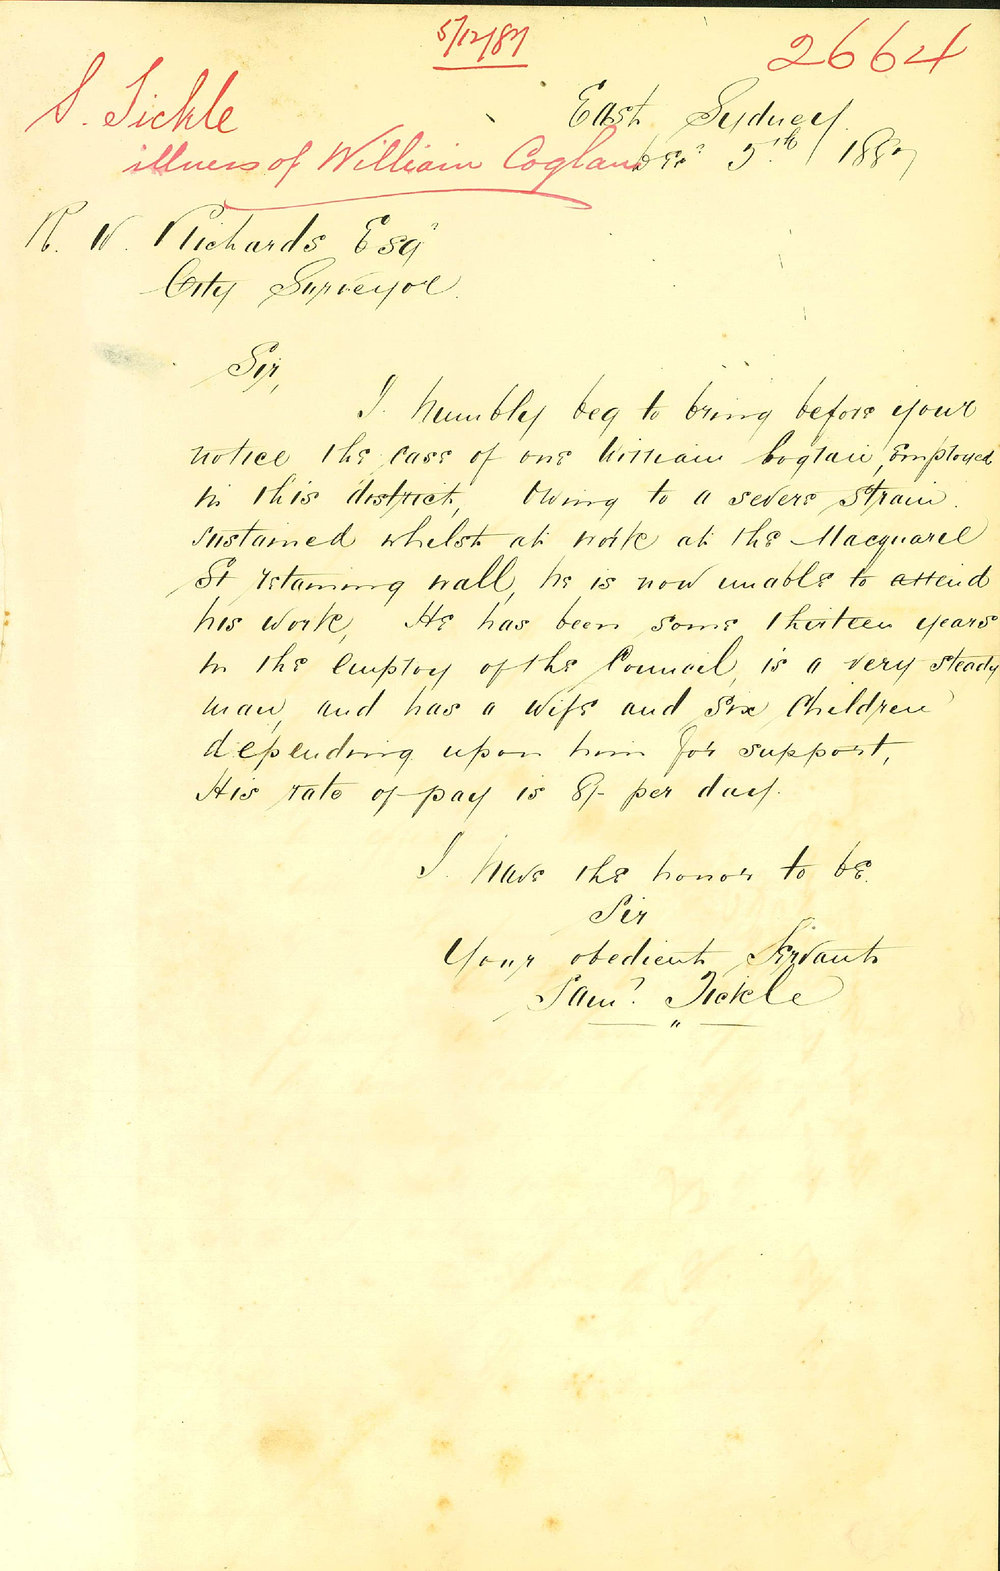 5/12/87
2664
S. Tickle
illness of William Coglan
East Sydney.
Decr 5th 1887
R. W. Richards Esqr
City Surveyor.
Sir,
I humbly beg to bring before your
notice the case of one William Coglan, employed
in this district, Owing to a severe strain
sustained whilst at work at the Macquarie
St retaining wall, he is now unable to attend
his work, He has been some thirteen years
in the employ of the Council, is a very steady
man, and has a wife and six children
depending upon him for support,
His rate of pay is 8/- per day.
I have the honor to be
Sir
Your obedient Servant
Saml. Tickle